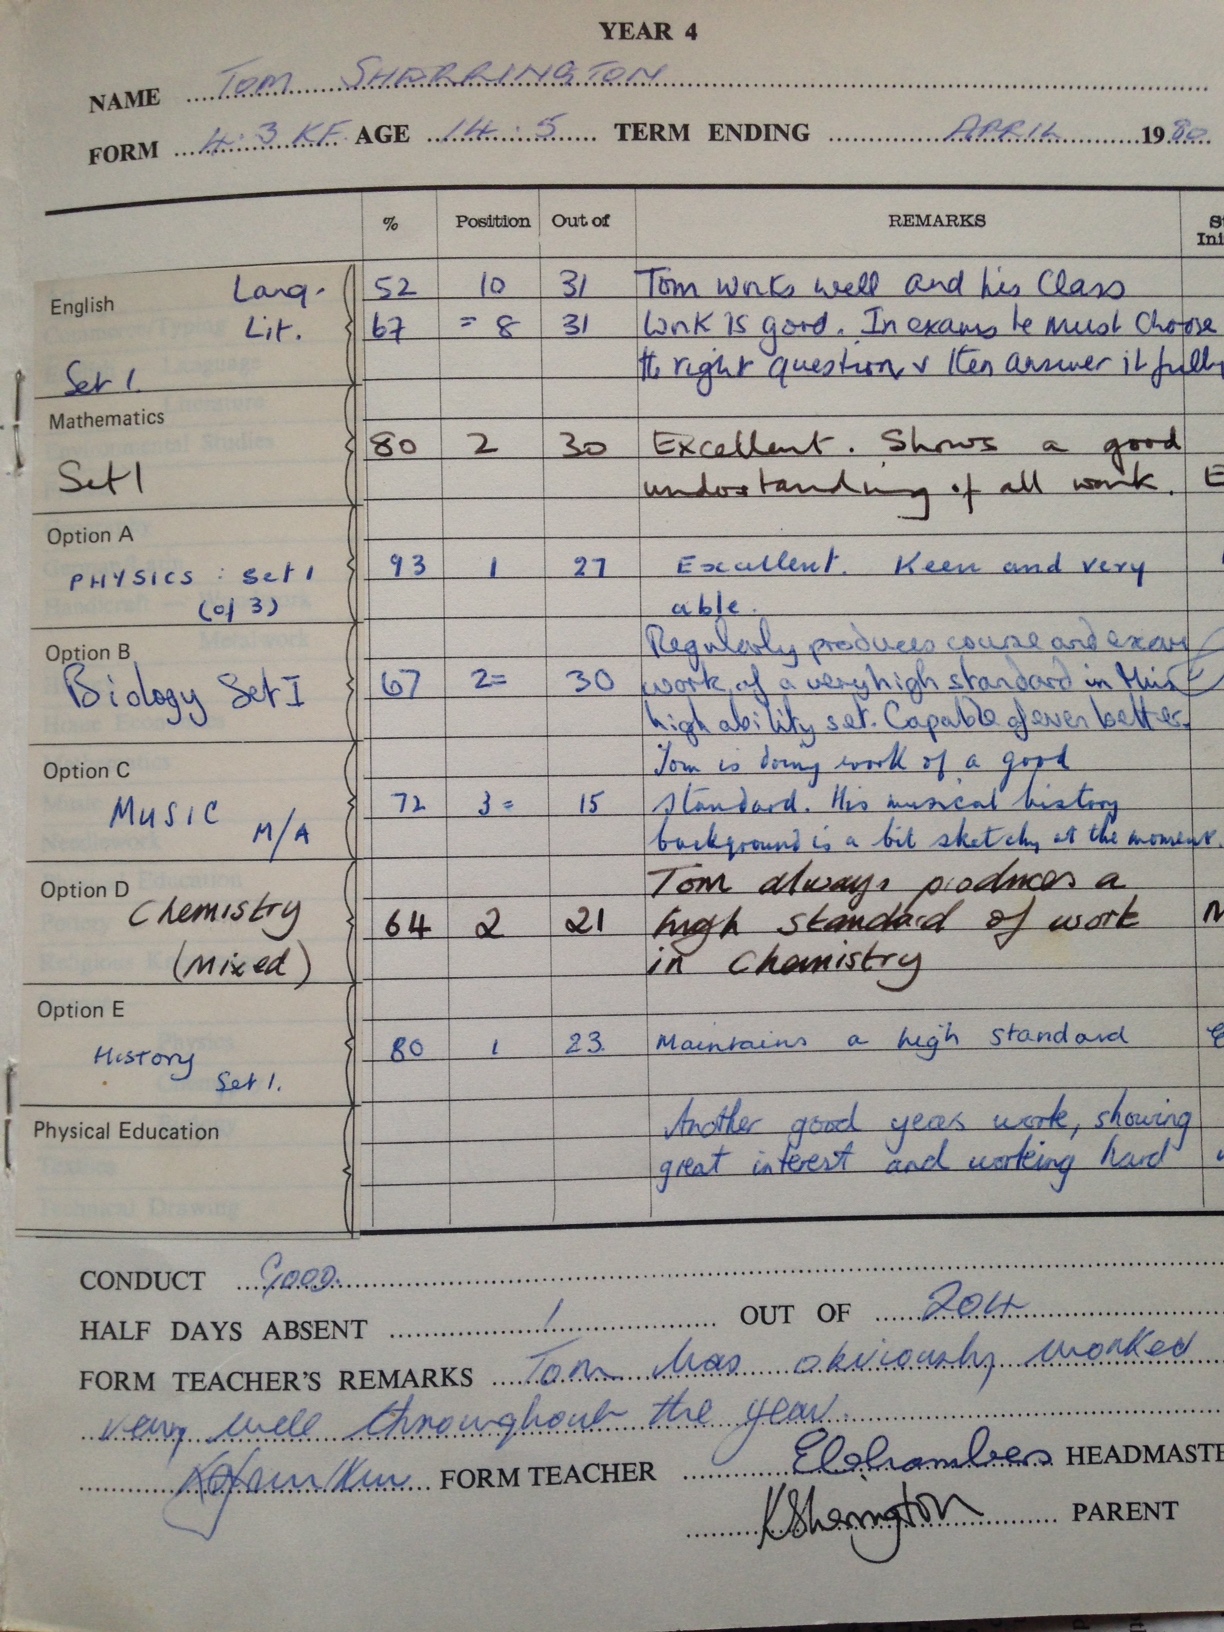 YEAR 4
NAME TOM SHERRINGTON
FORM 4.3 KF AGE 14.5 TERM ENDING APRIL 1980
% Position Out of REMARKS
English Lang. 52 10 31 Tom works well and his Class
Lit. 67 = 8 31 work is good. In exams he must choose
Set 1. the right question & then answer it fully
Mathematics
80 2 30 Excellent. Shows a good
Set 1 understanding of all work.
Option A
PHYSICS : Set 1 93 1 27 Excellent. Keen and very
(of 3) able.
Option B Regularly produces course and exam
Biology Set I 67 2= 30 work of a very high standard in this
high ability set. Capable of even better.
Option C Tom is doing work of a good
MUSIC 72 3= 15 standard. His musical history
M/A background is a bit sketchy at the moment.
Option D Tom always produces a
Chemistry 64 2 21 high standard of work
(Mixed) in Chemistry
Option E
History 80 1 23. Maintains a high standard
Set 1.
Physical Education Another good years work, showing
great interest and working hard
CONDUCT Good.
HALF DAYS ABSENT 1 OUT OF 204
FORM TEACHER'S REMARKS Tom has obviously worked
very well throughout the year.
FORM TEACHER HEADMASTE
K Sherrington PARENT